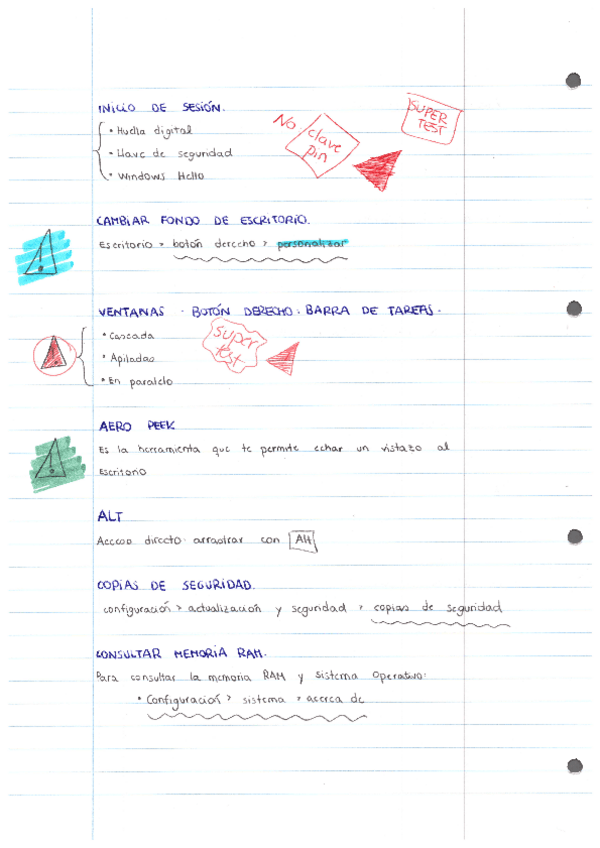 INICIO DE SESIÓN.
• Huella digital
• Llave de seguridad
• Windows Hello
No clave pin
SUPER TEST
CAMBIAR FONDO DE ESCRITORIO.
Escritorio > botón derecho > personalizar
VENTANAS · BOTÓN DERECHO · BARRA DE TAREAS.
• Cascada
• Apiladas
• En paralelo
super test
AERO PEEK
Es la herramienta que te permite echar un vistazo al
Escritorio
ALT
Acceso directo · arrastrar con Alt
COPIAS DE SEGURIDAD.
configuración > actualización y seguridad > copias de seguridad
CONSULTAR MEMORIA RAM.
Para consultar la memoria RAM y sistema Operativo:
• Configuración > sistema > acerca de